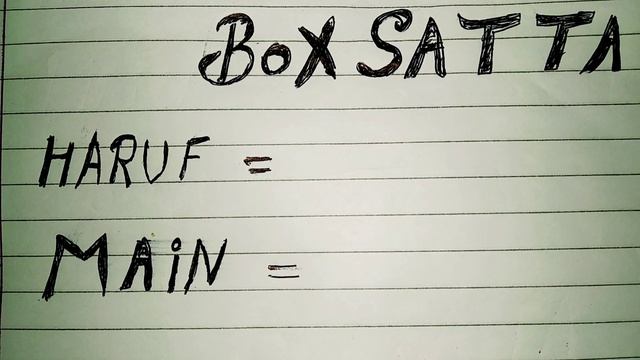 BOX SATTA
HARUF =
MAIN =